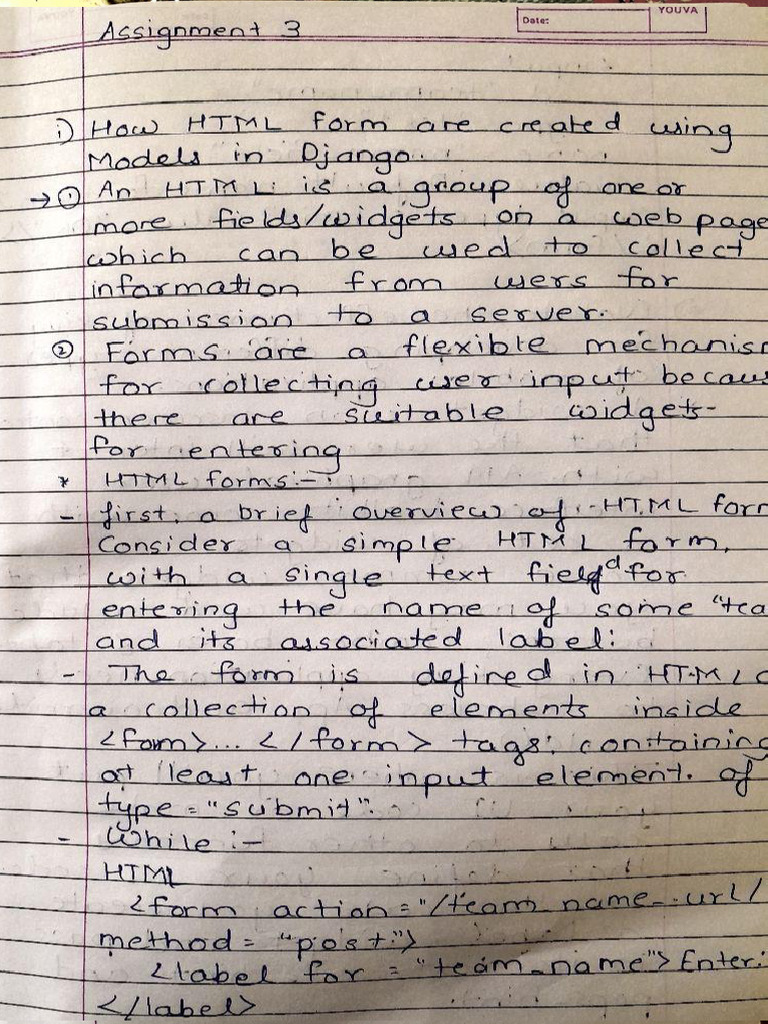 Assignment 3
Date:
YOUVA
i) How HTML form are created using
Models in Django.
→ ① An HTML is a group of one or
more fields/widgets on a web page
which can be used to collect
information from users for
submission to a server.
② Forms are a flexible mechanism
for collecting user input becau
there are suitable widgets-
for entering
* HTML forms:-
- first, a brief overview of HTML form
Consider a simple HTML form,
with a single text field for
entering the name of some "tea
and its associated label:
- The form is defined in HTML a
a collection of elements inside
<fom>... </form> tags, containing
at least one input element. of
type = "submit".
- While :-
HTML
<form action = "/team_name_url/
method = "post">
<label for = "team_name"> Enter:
</label>